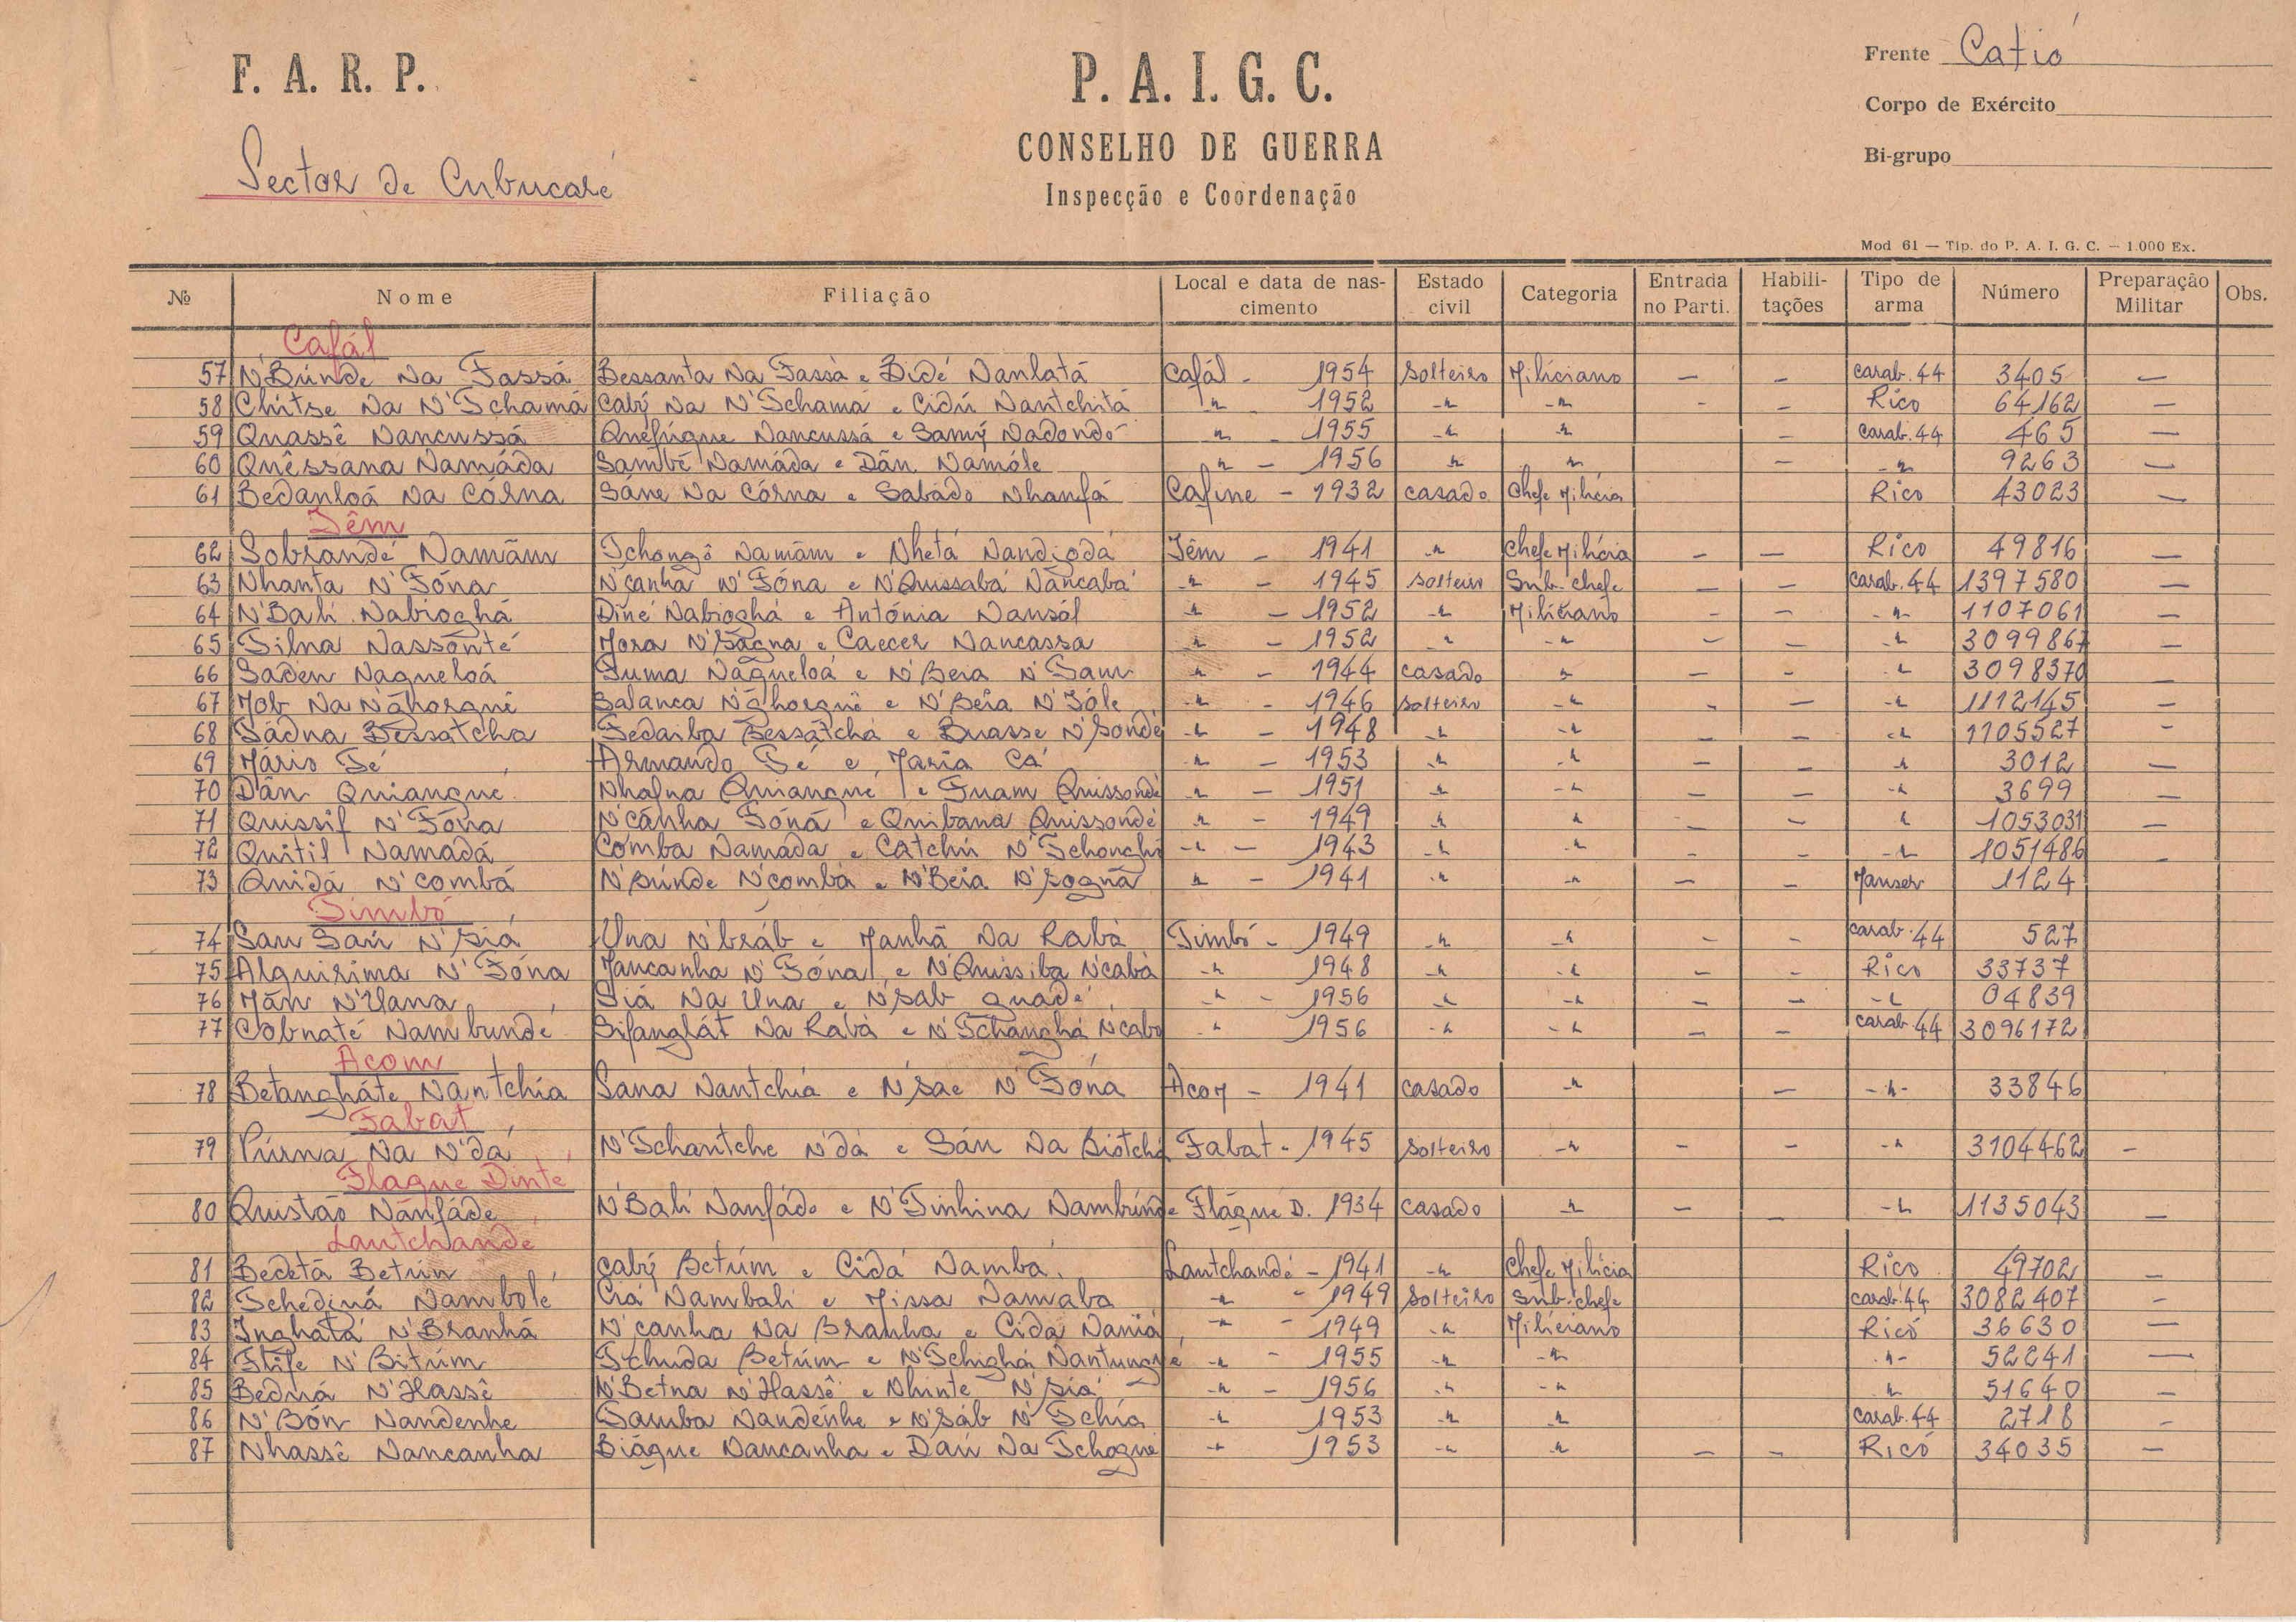 F. A. R. P.
P. A. I. G. C.
CONSELHO DE GUERRA
Inspecção e Coordenação
Sector de Cubucaré
Frente Catió
Corpo de Exército
Bi-grupo
Mod 61 — Tip. do P. A. I. G. C. — 1.000 Ex.
№ Nome Filiação Local e data de nascimento Estado civil Categoria Entrada no Parti. Habilitações Tipo de arma Número Preparação Militar Obs.
Cafál
57 N'Búnde Na Fassá Bessanta Na Fassá e Bidé Nanlatá Cafál - 1954 Solteiro Miliciano — — carab. 44 3405 —
58 Chitse Na N'Tchamá Cabý Na N'Tchamá e Cidú Nantchitá -"- 1952 -"- -"- - - Rico 64162 —
59 Quassê Nancussá Quefúgue Nancussá e Samý Nadondó -"- - 1955 -"- -"- - carab. 44 465 —
60 Quêssana Namáda Sambé Namáda e Dãn Namóle -"- - 1956 -"- -"- - -"- 9263 —
61 Bedanloá Na Córna Sáne Na Córna e Sabádo Nhanfá Cafine - 1932 casado Chefe Milícia Rico 43023 —
Iêm
62 Sobrandé Namãm Tchongô Namãm e Nhetá Nandiodá Iêm - 1941 -"- Chefe Milícia — — Rico 49816 —
63 Nhanta N'Fóna N'çanha N'Fóna e N'Quissabá Nancabá -"- - 1945 solteiro Sub. chefe — - carab. 44 1397580 —
64 N'Bali Nabioghá Diné Nabioghá e António Nansól -"- - 1952 -"- Miliciano - - -"- 1107061 —
65 Silna Nassónté Mora N'Sagna e Caecer Nancassa -"- - 1952 -"- -"- - - -"- 3099867 —
66 Saden Nagueloá Tuma Nagueloá e N'Beia N'Sam -"- - 1944 casado -"- - - -"- 3098370 —
67 Mob Na Náhorguê Balanca Náhorguê e N'Beia N'Tóle -"- - 1946 solteiro -"- - - -"- 1112145 —
68 Sádna Bessatcha Sedaiba Bessátchá e Buasse N'Sonde -"- - 1948 -"- -"- - - -"- 1105527 -
69 Mário Té Armando Té e Maria Cá -"- - 1953 -"- -"- - - -"- 3012 —
70 Dãn Quiangue Nhalna Quiangue e Tuam Quissondé -"- - 1951 -"- -"- - - -"- 3699 —
71 Quissif N'Fóna N'cãnha Fóná e Quibana Quissondé -"- - 1949 -"- -"- - - -"- 1053031 —
72 Quitil Namadá Comba Namada e Catchú N'Tchonghi -"- - 1943 -"- -"- - - -"- 1051486 -
73 Quidá N'combá N'Búnde N'combá e N'Beia N'Sognã -"- - 1941 -"- -"- - - Mauser 1124
Timbó
74 San San N'Siá Una N'bráb e Manhã Na Rabá Timbó - 1949 -"- -"- - - carab. 44 527
75 Alquisima N'Fóna Mancanha N'Fóna e N'Quissiba N'cabá -"- 1948 -"- -"- - - Rico 33737
76 Mãn N'Uana Siá Na Una e N'Sab Quadé -"- - 1956 -"- -"- - - -"- 04839
77 Cobnaté Nambundé Bifanglát Na Rabá e N'Tchanghá N'cabo -"- 1956 -"- -"- - - carab 44 3096172
Acom
78 Betangháte Nantchia Sana Nantchiá e N'Sae N'Fóna Acom - 1941 casado -"- - -"- 33846
Fabat
79 Púrna Na N'dá N'Tchantche N'dá e Sán Na Biótchi Fabat - 1945 solteiro -"- - - -"- 3104462 -
Flaque Dinte
80 Quistão Nánfáde N'Bali Nanfádo e N'Tinhina Nambúnde Fláque D. 1934 casado -"- - - -"- 1135043 —
Lantchandé
81 Bedetã Betún Cabý Betúm e Cidá Nambá Lantchandé - 1941 -"- Chefe Milícia Rico 49702 —
82 Tchediná Nambolé Ciá Nambali e Missa Namaba -"- - 1949 Solteiro Sub. chefe carab. 44 3082407 —
83 Inghatá N'Branhá N'canha Na Branha e Cidá Naniá -"- - 1949 -"- Miliciano Rico 36630 —
84 Flife N'Bitúm Tchuda Betúm e N'Tchighá Nantungué -"- - 1955 -"- -"- -"- 52241 —
85 Bedná N'Hassê N'Betna N'Hassê e Nhinte N'Siá -"- - 1956 -"- -"- -"- 51640 —
86 N'Bón Nandenhe Samba Nandénhe e N'Sáb N'Tchia -"- 1953 -"- -"- carab. 44 2718 -
87 Nhassê Nancanha Biágue Nancanha e Daú Na Tchogue -"- 1953 -"- -"- - - Rico 34035 —